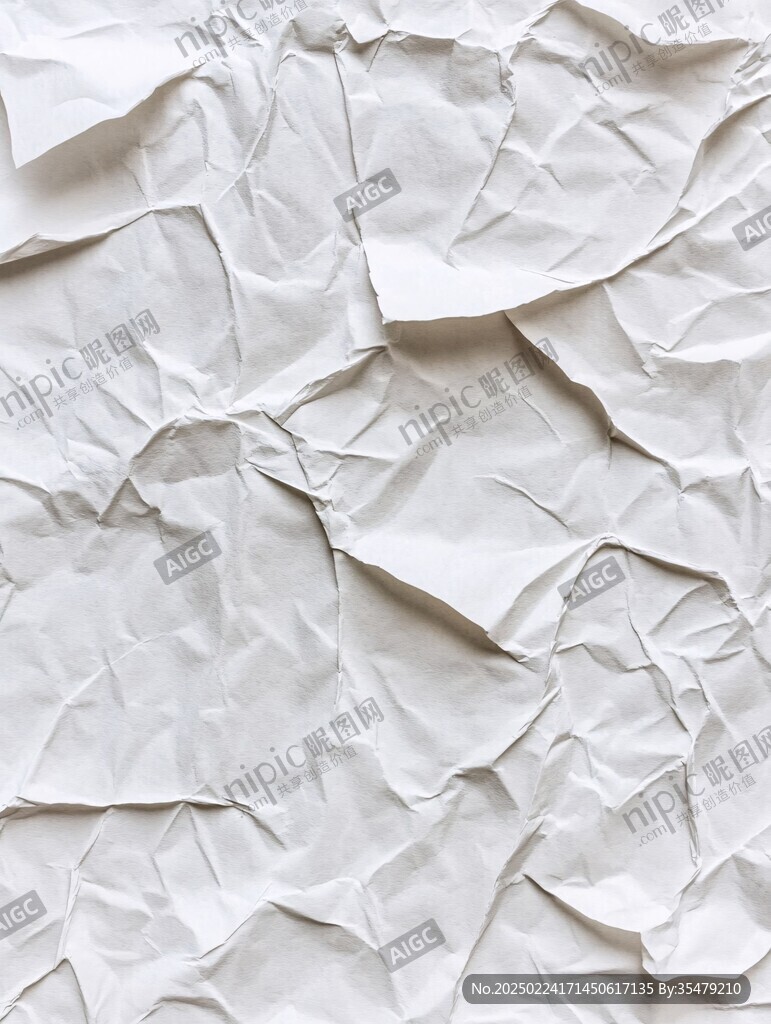 nipic 昵图网
.com 共享创造价值
nipic 昵图网
.com 共享创造价值
AIGC
AIGC
nipic 昵图网
.com 共享创造价值
nipic 昵图网
.com 共享创造价值
AIGC
AIGC
nipic 昵图网
.com 共享创造价值
nipic 昵图网
.com 共享创造价值
AIGC
AIGC
No.20250224171450617135 By:35479210